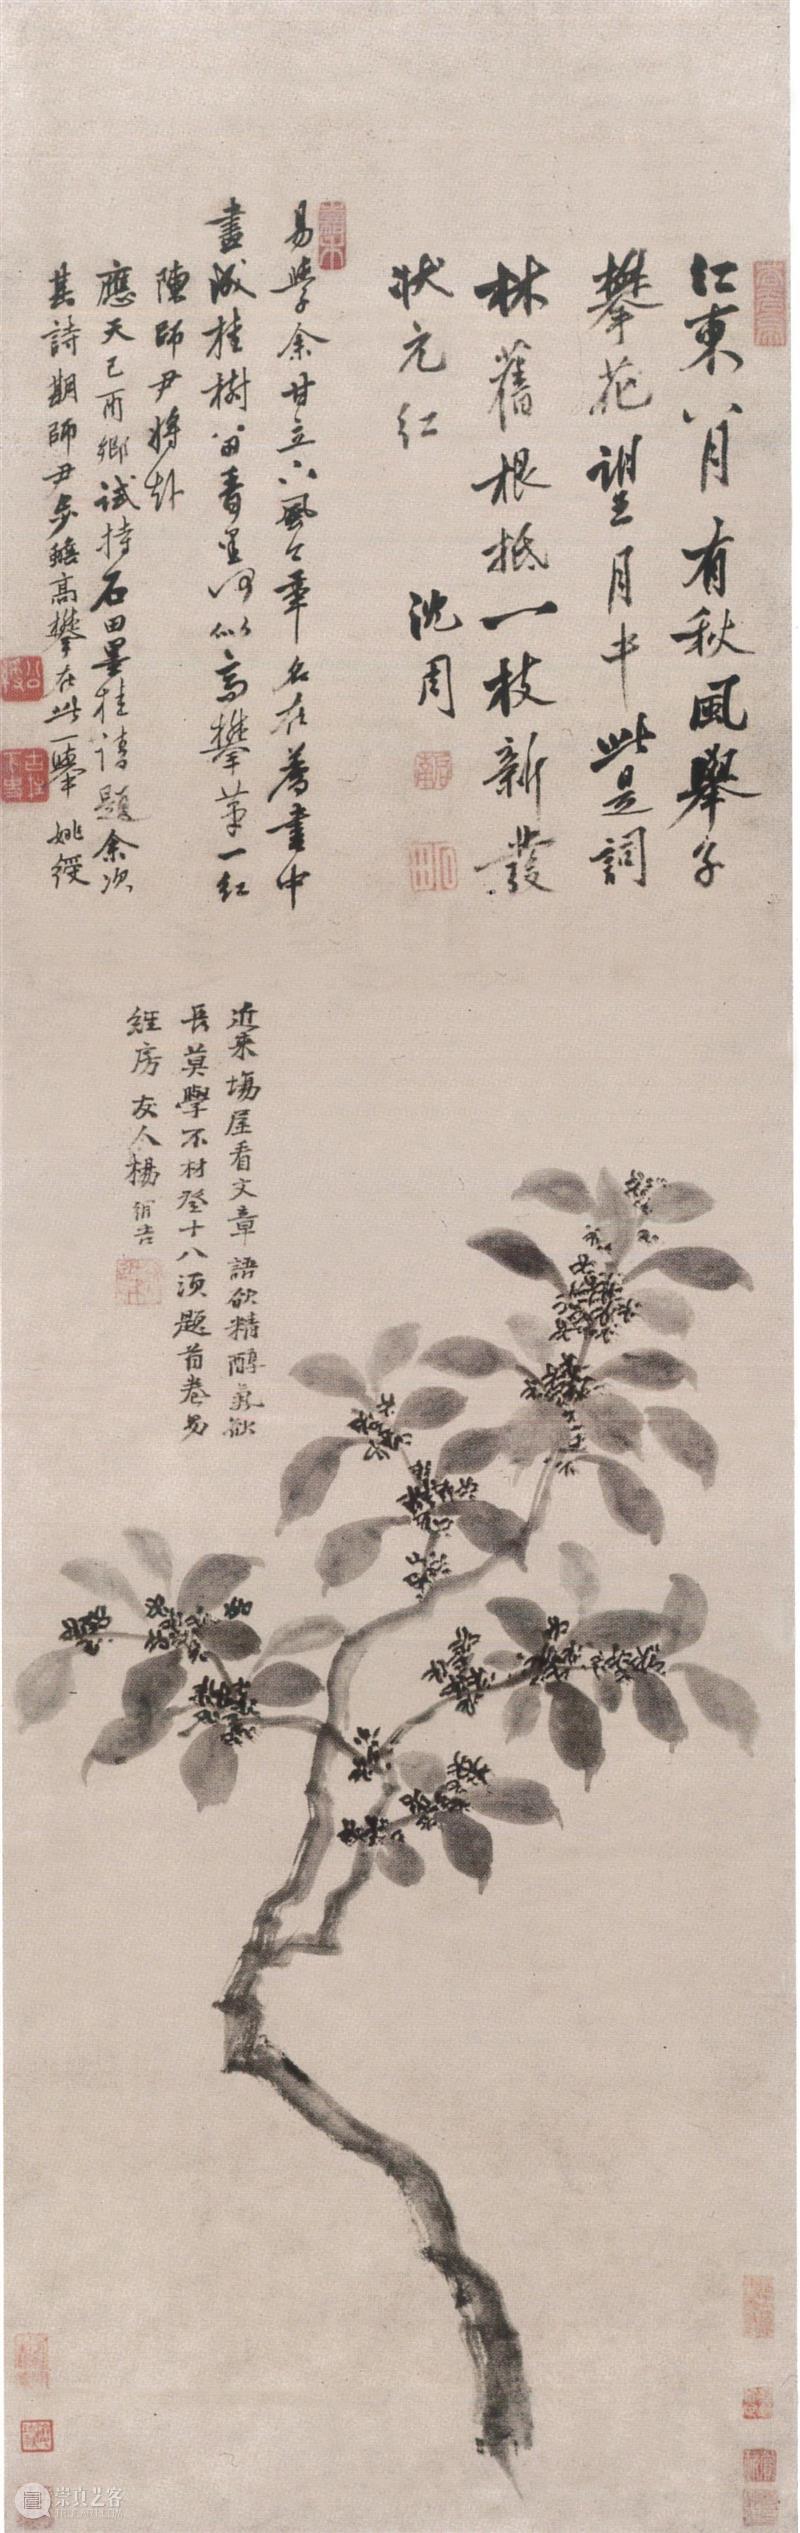 江東八月有秋風舉子
攀花望月中此是詞
林舊根抵一枝新發
狀元紅
沈周
易學余甘立下風年名在薦書中
畫成桂樹留香里何似高攀第一紅
陳師尹將赴
應天己酉鄉試持石田墨桂請題余次
其詩期師尹高攀在此一舉 姚綬
近來場屋看文章語欲精醇氣欲
長莫學不材登十八須題首卷易
經房 友人楊循吉
崇真艺客